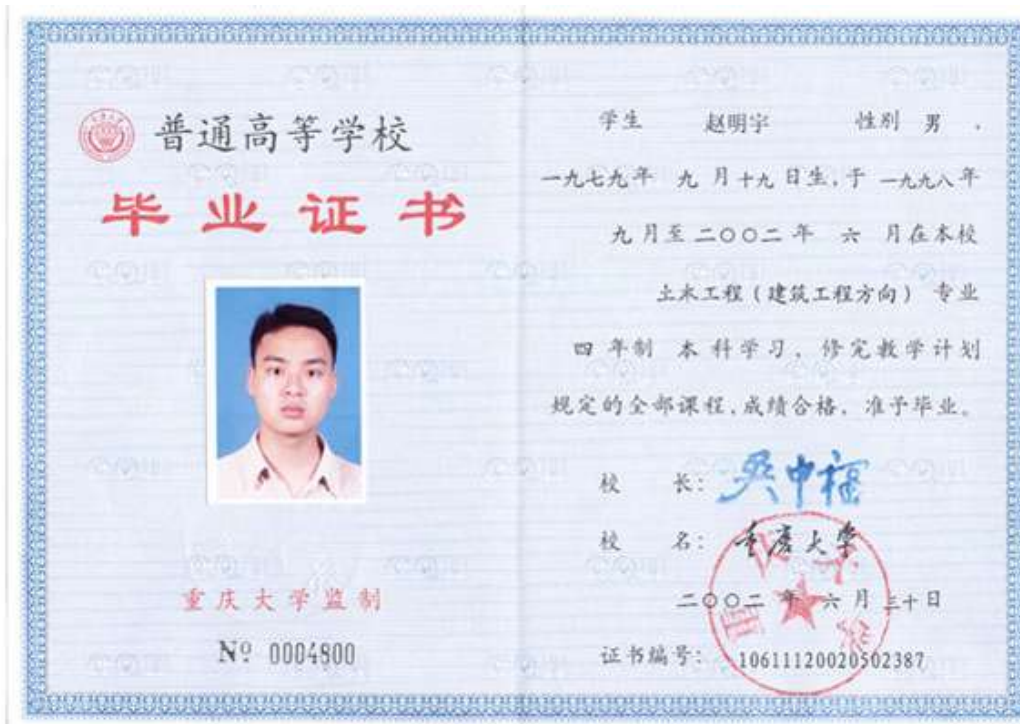 普通高等学校
毕业证书
重庆大学监制
Nº 0004800
学生 赵明宇 性别 男 ,
一九七九年 九 月十九日生,于 一九九八年
九月至二〇〇二年 六 月在本校
土木工程(建筑工程方向) 专业
四 年制 本科学习,修完教学计划
规定的全部课程,成绩合格,准予毕业。
校 长: 吴中福
校 名: 重庆大学
二〇〇二年 六 月三十日
证书编号: 10611120020502387